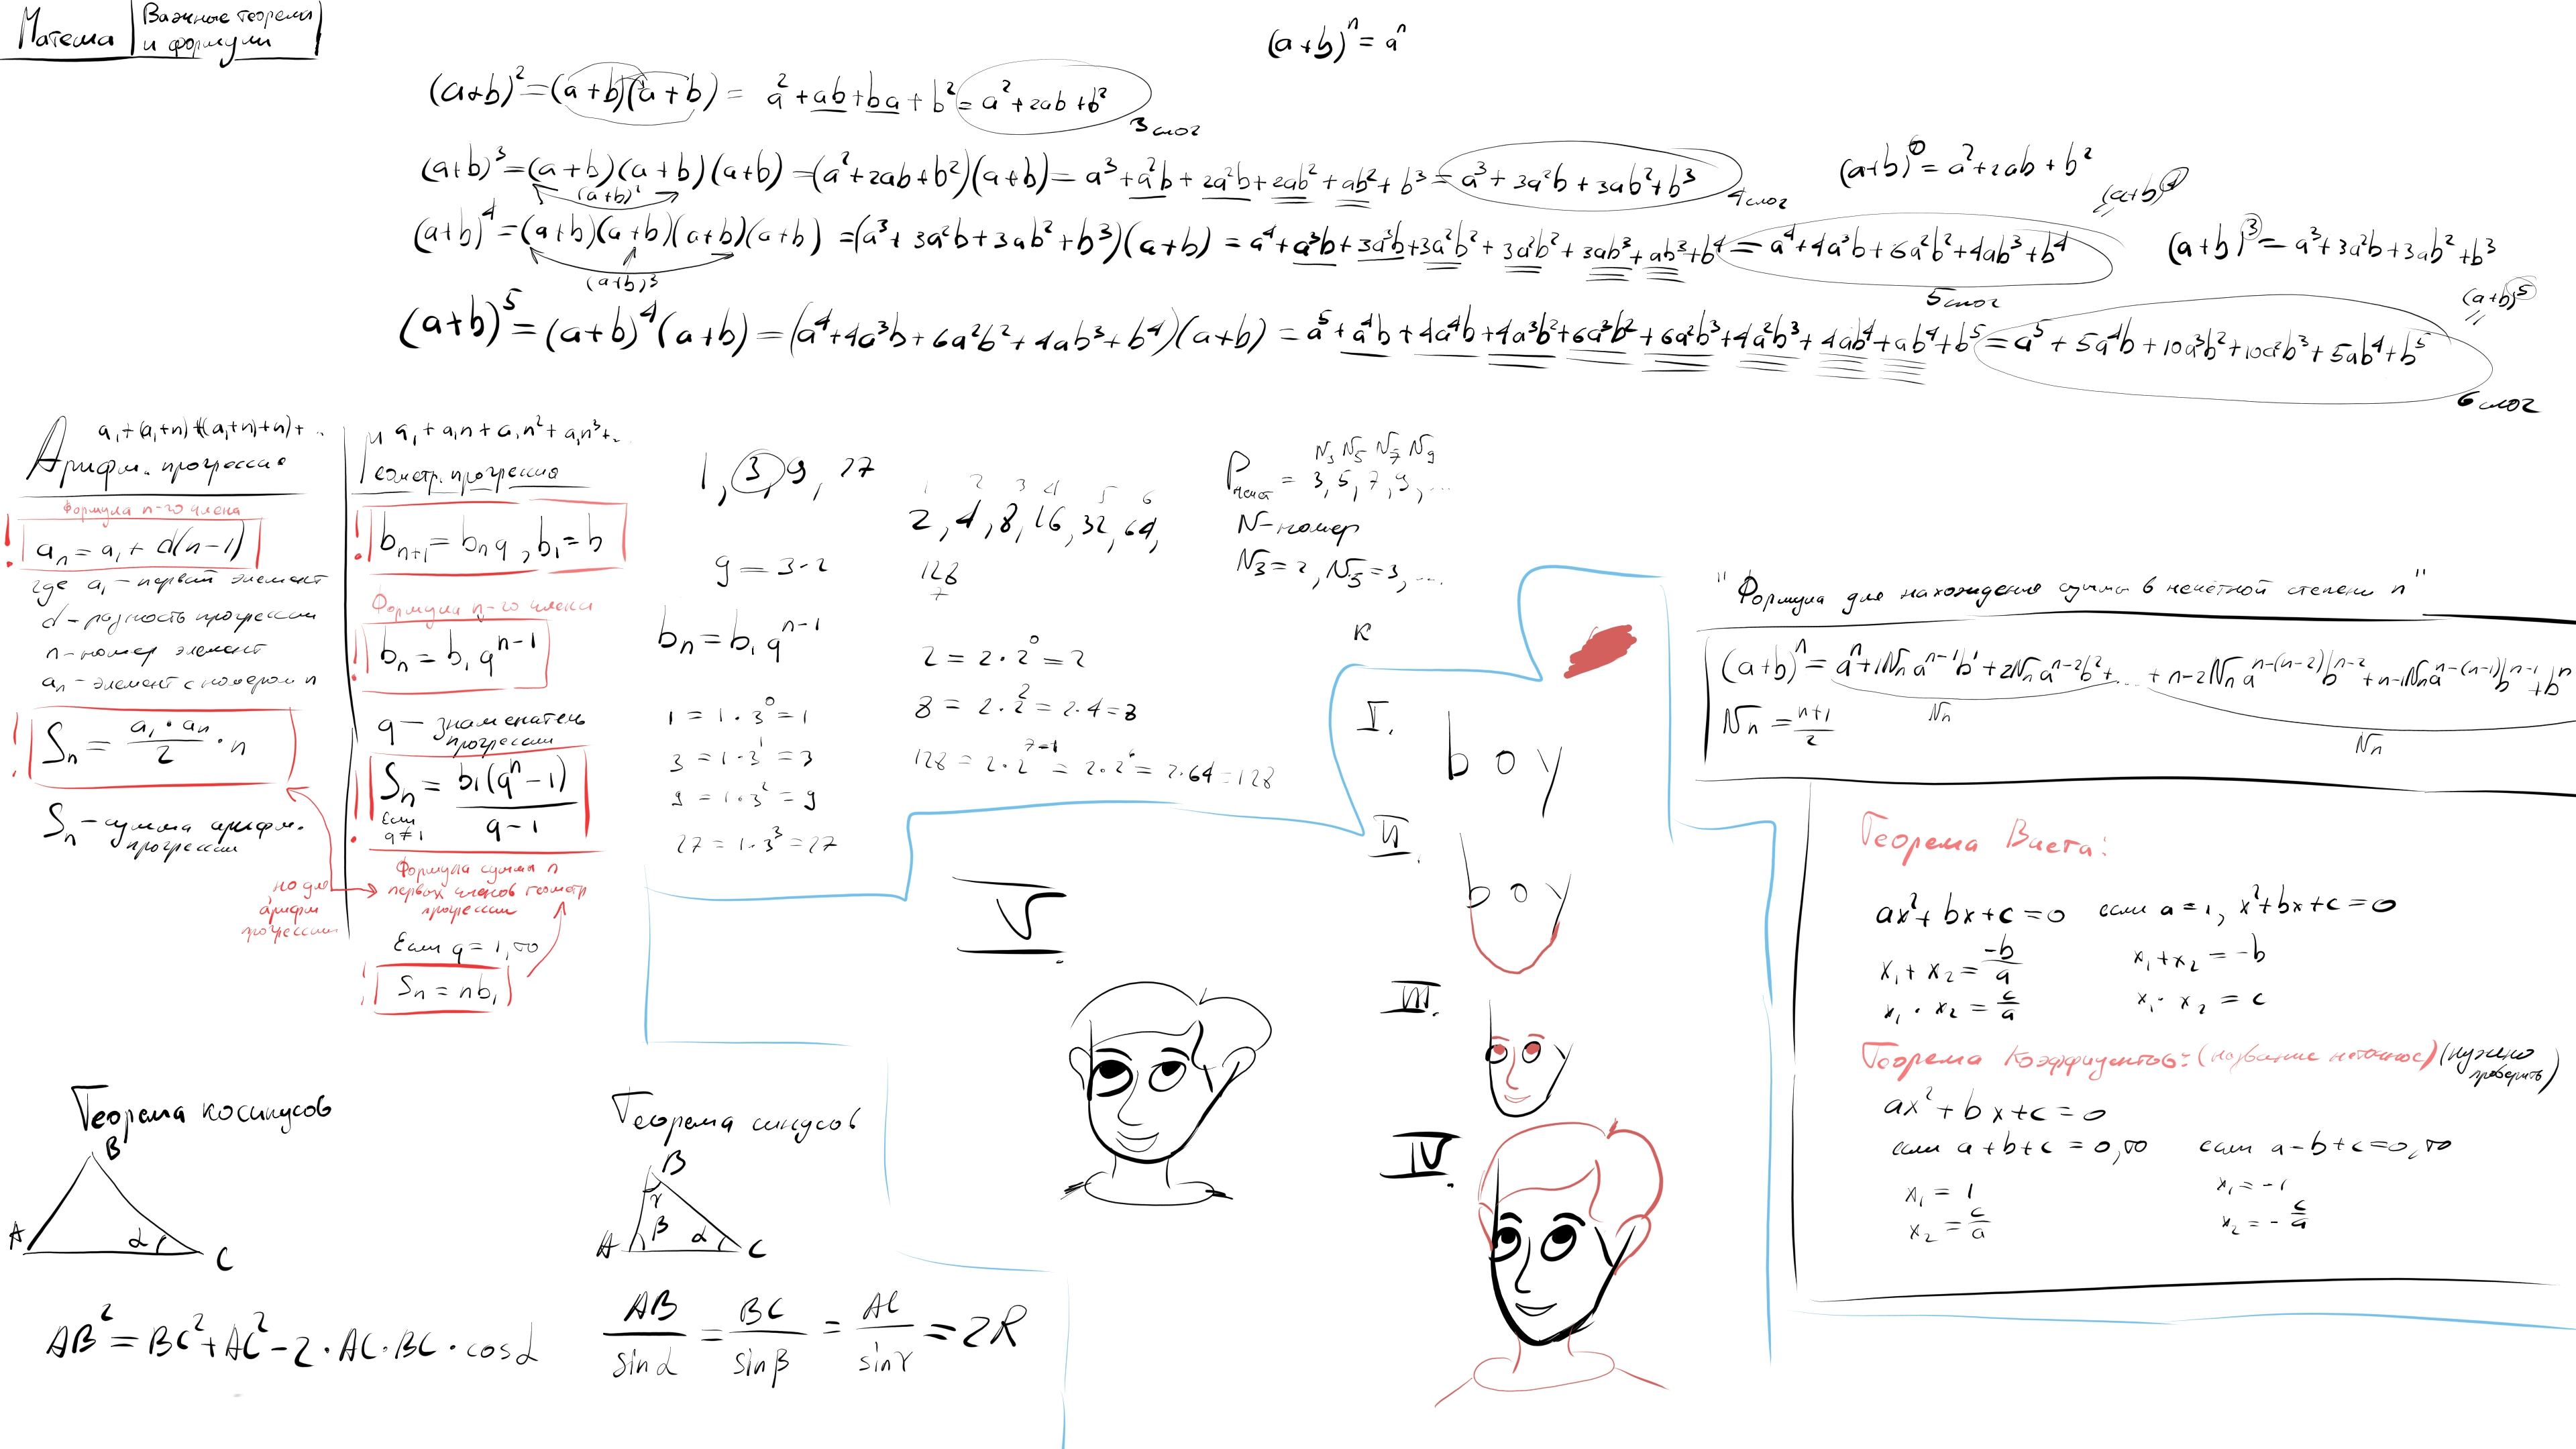 Матеша
Важные теоремы
и формулы
(a+b)ⁿ = aⁿ
(a+b)² = (a+b)(a+b) = a² + ab + ba + b² = a² + 2ab + b²
3 слог
(a+b)³ = (a+b)(a+b)(a+b) = (a² + 2ab + b²)(a+b) = a³ + a²b + 2a²b + 2ab² + ab² + b³ = a³ + 3a²b + 3ab² + b³
(a+b)²
4 слог
(a+b)⁴ = (a+b)(a+b)(a+b)(a+b) = (a³ + 3a²b + 3ab² + b³)(a+b) = a⁴ + a³b + 3a³b + 3a²b² + 3a²b² + 3ab³ + ab³ + b⁴ = a⁴ + 4a³b + 6a²b² + 4ab³ + b⁴
(a+b)³
5 слог
(a+b)⁵ = (a+b)⁴(a+b) = (a⁴ + 4a³b + 6a²b² + 4ab³ + b⁴)(a+b) = a⁵ + a⁴b + 4a⁴b + 4a³b² + 6a³b² + 6a²b³ + 4a²b³ + 4ab⁴ + ab⁴ + b⁵ = a⁵ + 5a⁴b + 10a³b² + 10a²b³ + 5ab⁴ + b⁵
6 слог
= a² + 2ab + b²
(a+b)³ = a³ + 3a²b + 3ab² + b³
(a+b)⁵
a₁ + (a₁+n) + ((a₁+n)+n) + ..
Арифм. прогрессия
Формула n-го члена
! aₙ = a₁ + d(n-1)
где a₁ - первый элемент
d - разность прогрессии
n - номер элемент
aₙ - элемент с номером n
! Sₙ = (a₁ · aₙ)/2 · n
Sₙ - сумма арифм.
прогрессии
но для
арифм
прогрессии
a₁ + a₁n + a₁n² + a₁n³ + ..
Геометр. прогрессия
! bₙ₊₁ = bₙq, b₁ = b
Формула n-го члена
! bₙ = b₁qⁿ⁻¹
q - знаменатель
прогрессии
! Sₙ = b₁(qⁿ-1)/(q-1)
Если
q ≠ 1
Формула суммы n
первых членов геометр
прогрессии
Если q = 1, то
! Sₙ = nb₁
1, 3, 9, 27
9 = 3·2
bₙ = b₁qⁿ⁻¹
1 = 1·3⁰ = 1
3 = 1·3¹ = 3
9 = 1·3² = 9
27 = 1·3³ = 27
1 2 3 4 5 6
2, 4, 8, 16, 32, 64,
128
7
2 = 2·2⁰ = 2
8 = 2·2² = 2·4 = 8
128 = 2·2⁷⁻¹ = 2·2⁶ = 2·64 = 128
N₃ N₅ N₇ N₉
= 3, 5, 7, 9, ...
N - номер
N₃ = 2, N₅ = 3, ...
К
I.
boy
II.
boy
III.
IV.
V.
"Формула для нахождения суммы в нечётной степени n"
(a+b)ⁿ = aⁿ + 1Nₙaⁿ⁻¹b¹ + 2Nₙaⁿ⁻²b² + ... + n-2Nₙaⁿ⁻⁽ⁿ⁻²⁾bⁿ⁻² + n-1Nₙaⁿ⁻⁽ⁿ⁻¹⁾bⁿ⁻¹ + bⁿ
Nₙ
Nₙ
Nₙ = (n+1)/2
Теорема Виета:
ax² + bx + c = 0 если a = 1, x² + bx + c = 0
x₁ + x₂ = -b/a x₁ + x₂ = -b
x₁ · x₂ = c/a x₁ · x₂ = c
Теорема Коэффициентов: (название неточное) (нужно
проверить)
ax² + bx + c = 0
если a + b + c = 0, то если a - b + c = 0, то
x₁ = 1 x₁ = -1
x₂ = c/a x₂ = - c/a
Теорема косинусов
B
A
α
C
AB² = BC² + AC² - 2·AC·BC·cosα
Теорема синусов
B
γ
A
β
α
C
AB/sinα = BC/sinβ = AC/sinγ = 2R